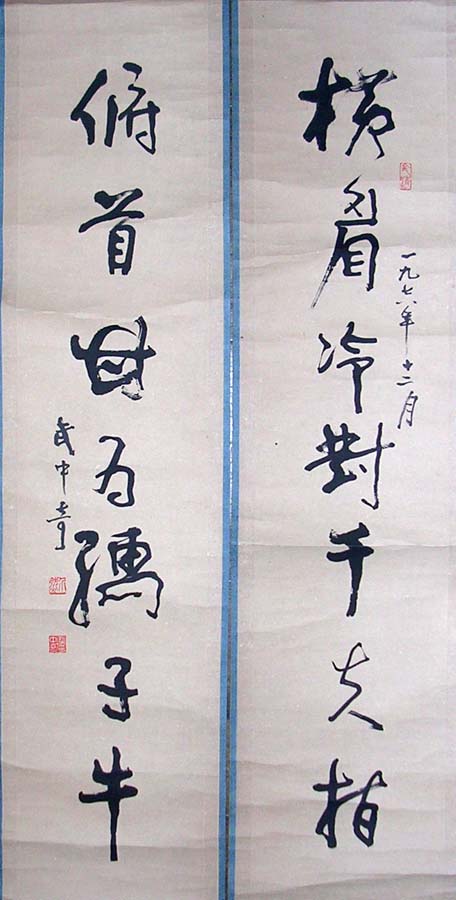 横眉冷對千夫指
一九七六年十二月
俯首甘为孺子牛
武中奇